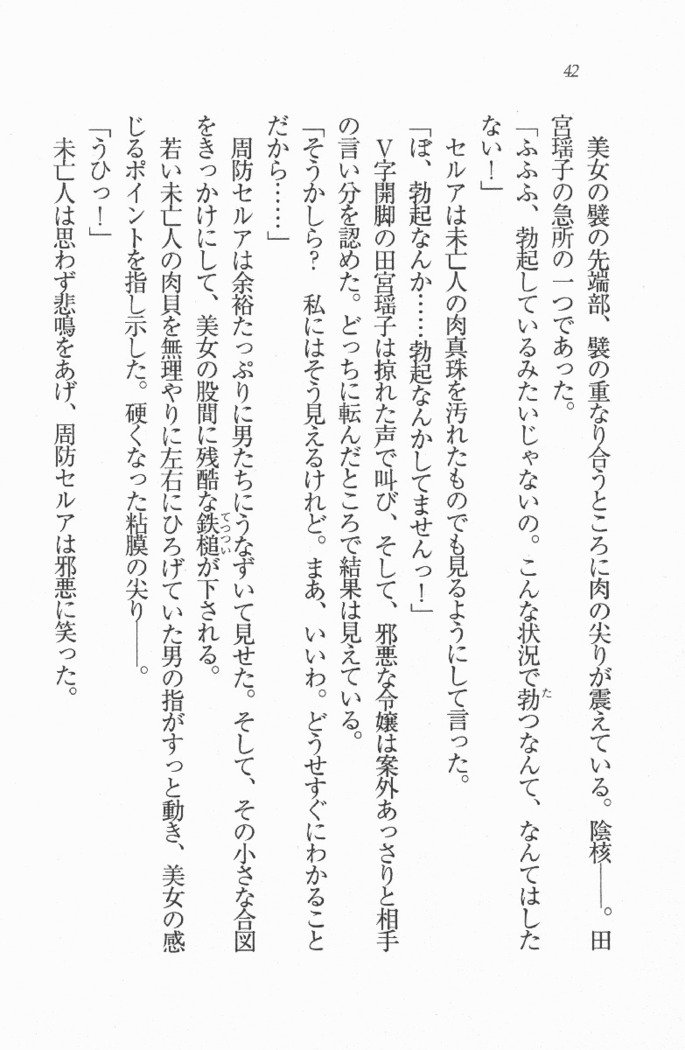 42
美女の襞の先端部、襞の重なり合うところに肉の尖りが震えている。陰核――。田
宮瑶子の急所の一つであった。
「ふふふ、勃起しているみたいじゃないの。こんな状況で勃つなんて、なんてはした
ない!」
セルアは未亡人の肉真珠を汚れたものでも見るようにして言った。
「ぼ、勃起なんか……勃起なんかしてませんっ!」
V字開脚の田宮瑶子は掠れた声で叫び、そして、邪悪な令嬢は案外あっさりと相手
の言い分を認めた。どっちに転んだところで結果は見えている。
「そうかしら? 私にはそう見えるけれど。まあ、いいわ。どうせすぐにわかること
だから……」
周防セルアは余裕たっぷりに男たちにうなずいて見せた。そして、その小さな合図
をきっかけにして、美女の股間に残酷な鉄槌が下される。
若い未亡人の肉貝を無理やりに左右にひろげていた男の指がすっと動き、美女の感
じるポイントを指し示した。硬くなった粘膜の尖り――。
「うひっ!」
未亡人は思わず悲鳴をあげ、周防セルアは邪悪に笑った。